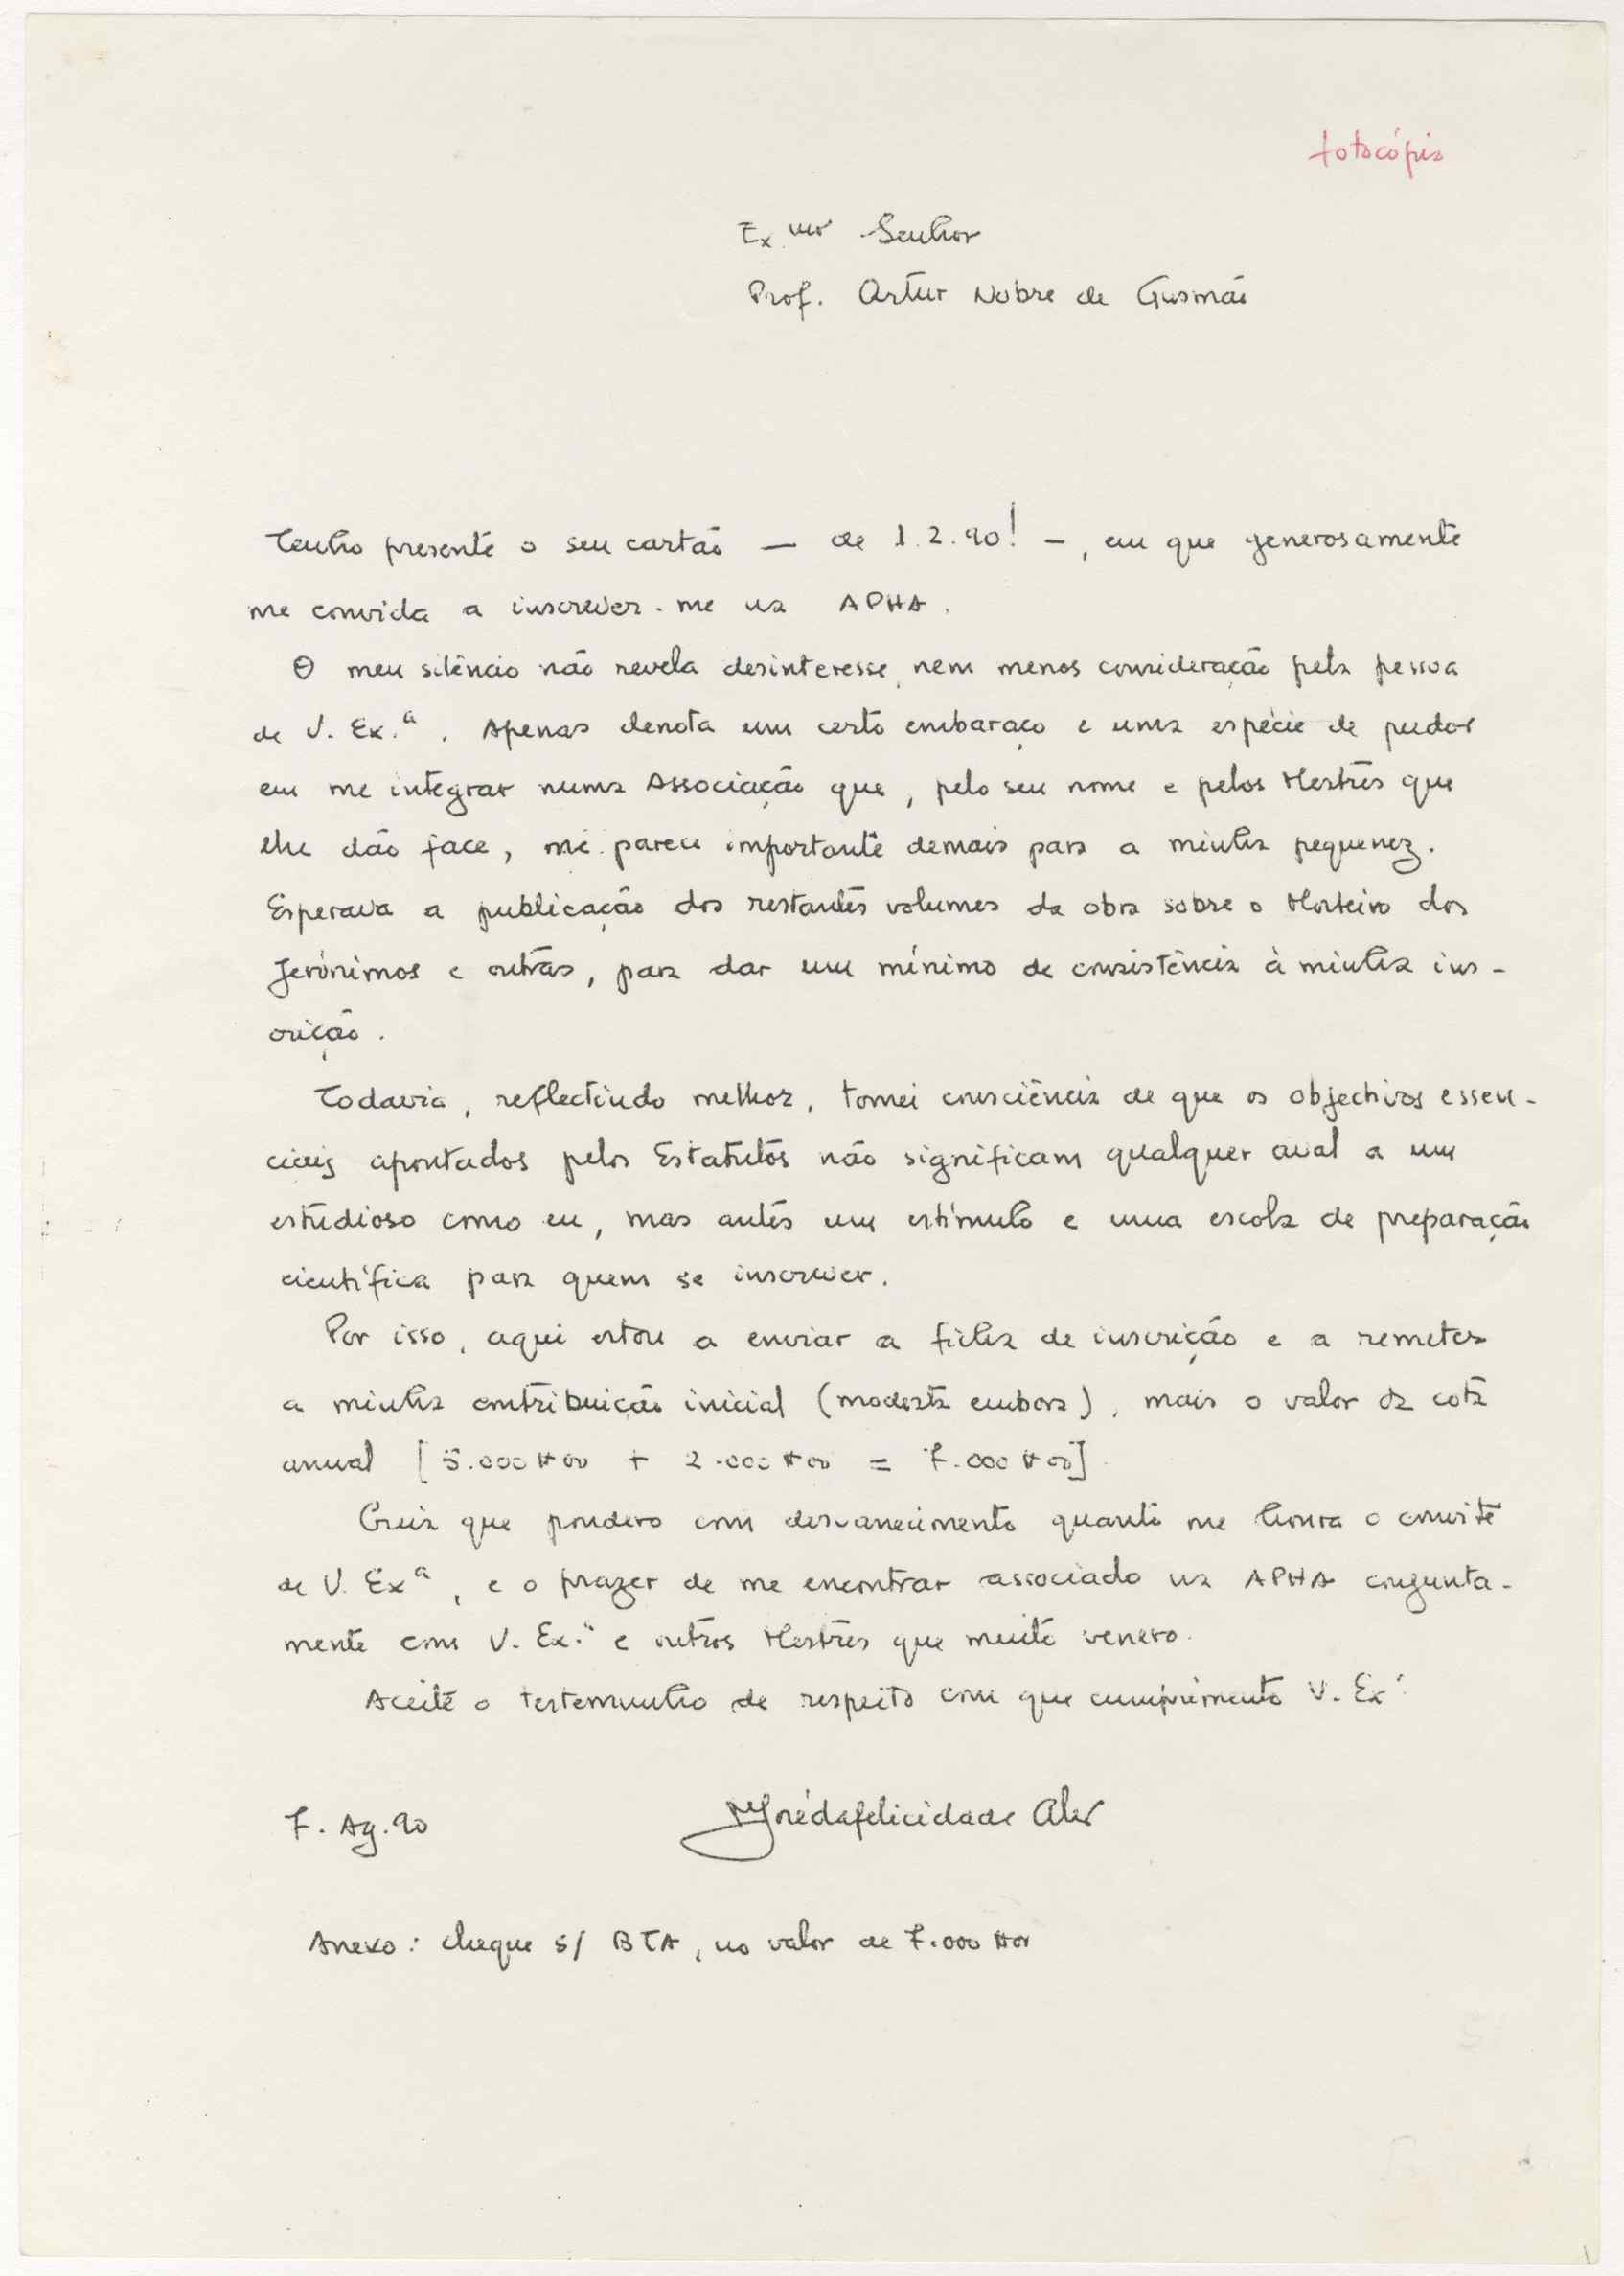 fotocópia
Ex.mo Senhor
Prof. Artur Nobre de Gusmão
Tenho presente o seu cartão — de 1.2.90! —, em que generosamente
me convida a inscrever-me na APHA.
O meu silêncio não revela desinteresse, nem menos consideração pela pessoa
de V. Ex.ª. Apenas denota um certo embaraço e uma espécie de pudor
em me integrar numa Associação que, pelo seu nome e pelos Mestres que
lhe dão face, me parece importante demais para a minha pequenez.
Esperava a publicação dos restantes volumes da obra sobre o Mosteiro dos
Jerónimos e outras, para dar um mínimo de consistência à minha ins-
crição.
Todavia, reflectindo melhor, tomei consciência de que os objectivos essen-
ciais apontados pelos Estatutos não significam qualquer aval a um
estudioso como eu, mas antes um estímulo e uma escola de preparação
científica para quem se inscrever.
Por isso, aqui estou a enviar a ficha de inscrição e a remeter
a minha contribuição inicial (modesta embora), mais o valor da cota
anual [5.000$00 + 2.000$00 = 7.000$00]
Creia que pondero com desvanecimento quanto me honra o convite
de V. Exª, e o prazer de me encontrar associado na APHA conjunta-
mente com V. Ex.ª e outros Mestres que muito venero.
Aceite o testemunho de respeito com que cumprimento V. Exª
7. Ag. 90
Josédafelicidade Alves
Anexo: cheque s/ BTA, no valor de 7.000$00